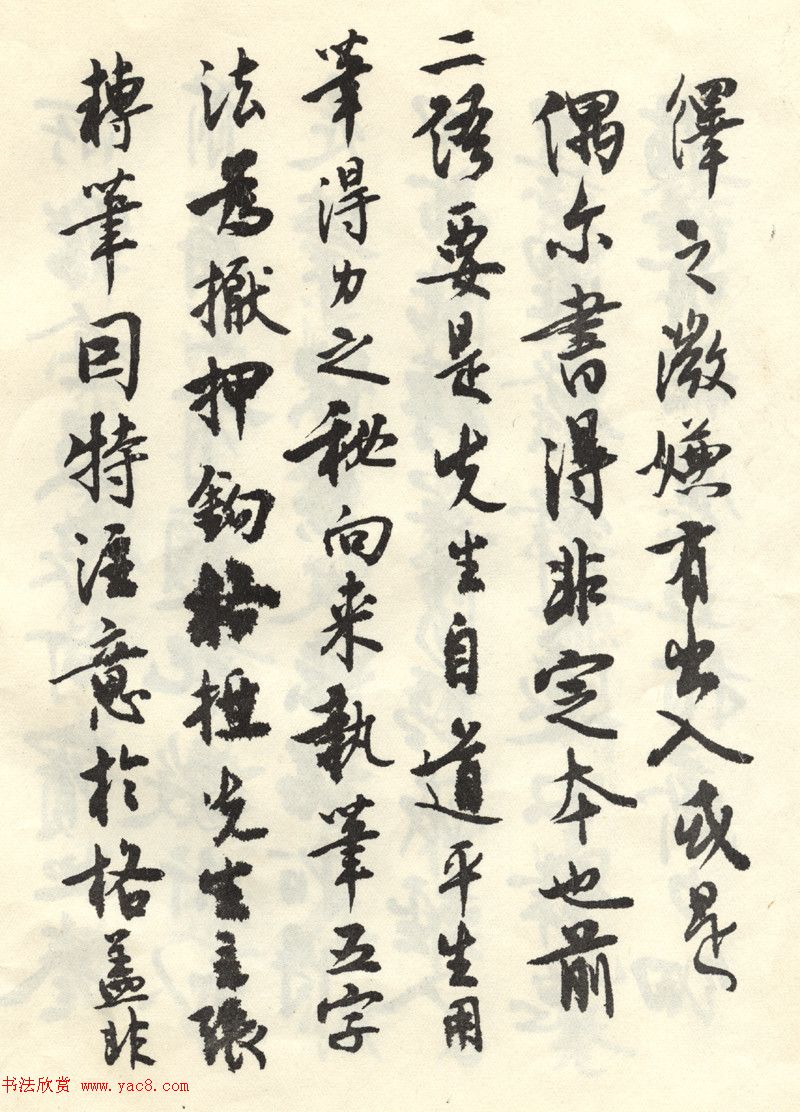 繹之微嫌有出入或是
偶尔書得非定本也前
二語要是先生自道平生用
筆得力之秘向来執筆五字
法為擫押鉤格抵先生主張
轉筆因特注意於格盖非
书法欣赏 www.yac8.com